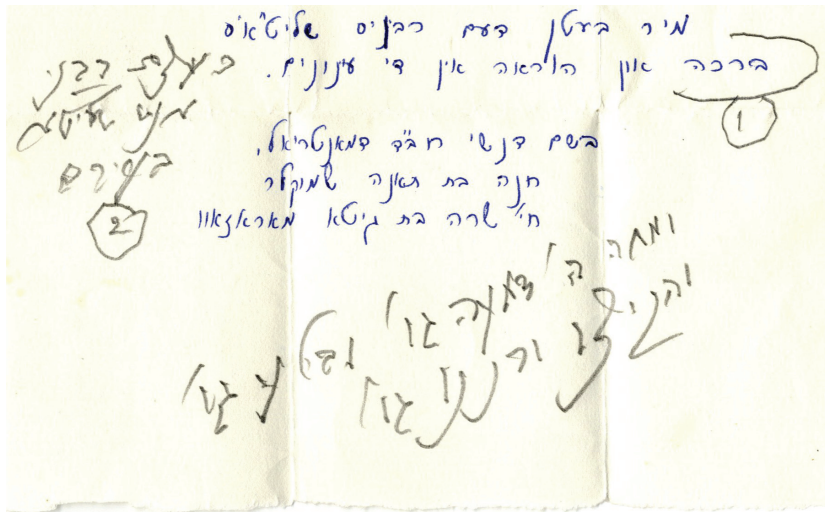 מיר בעטן דעם רבניס שליט"א'ס
ברכה און הוראה אין די ענינים.
1
כעצת רבני
בעירם
2
בשם דנשי חב"ד דמאנטריאל,
חנה בת תאנה שמוקלר
חי' שרה בת גיטא מאראזאוו
ומחה ה' דמעה גו'
והקיצו ורננו גו'